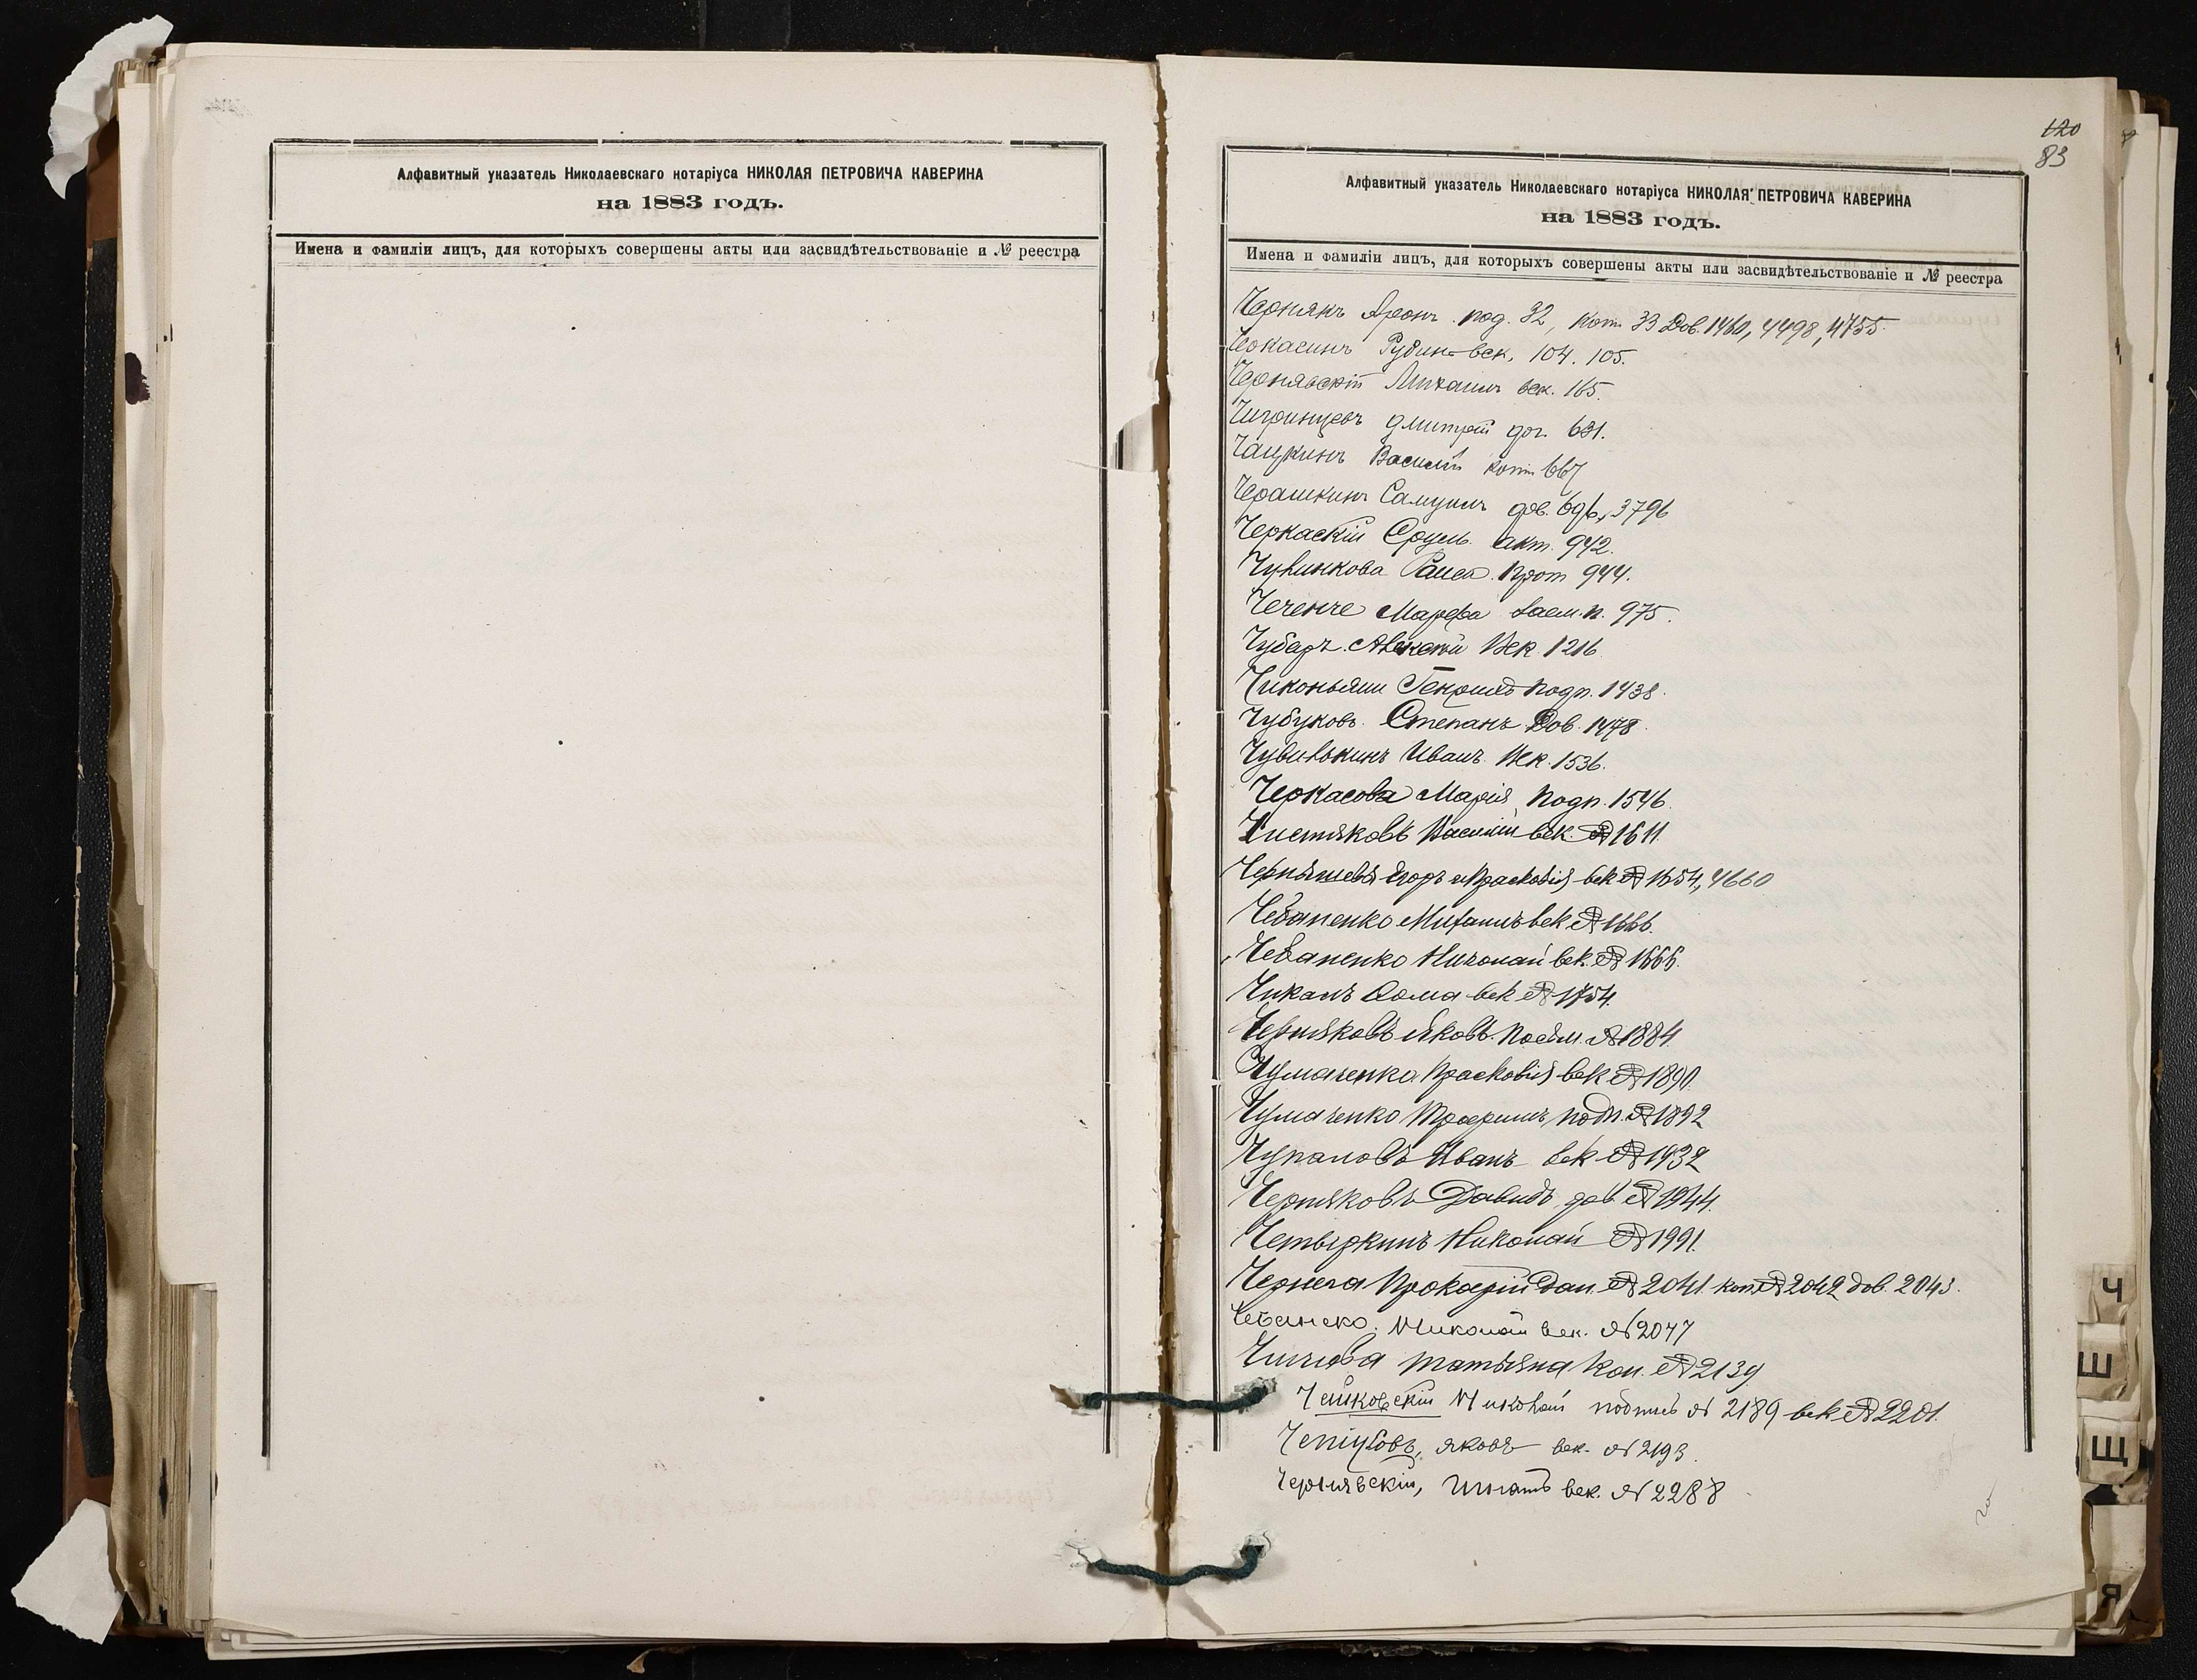 Алфавитный указатель Николаевскаго нотаріуса НИКОЛАЯ ПЕТРОВИЧА КАВЕРИНА
на 1883 годъ.
Имена и фамиліи лицъ, для которыхъ совершены акты или засвидѣтельствованіе и № реестра
120
83
Алфавитный указатель Николаевскаго нотаріуса НИКОЛАЯ ПЕТРОВИЧА КАВЕРИНА
на 1883 годъ.
Имена и фамиліи лицъ, для которыхъ совершены акты или засвидѣтельствованіе и № реестра
Чернякъ Аронъ под. 32, коп. 33 Дов. 1460, 4498, 4755
Черкасинъ Рубинъ век. 104. 105.
Чернявскій Михаилъ век. 165.
Чигринцевъ Дмитрій дог. 631.
Чацкинъ Василій коп 667
Черашкинъ Самуилъ дов. 696, 3796
Черкаскій Сруль акт. 942.
Чувинкова Раиса. Прот 944.
Чеченче Марфа заем.п. 975.
Чубарь Алексѣй Век 1216
Чиконьяни Генрихъ подп. 1438.
Чубуковъ. Степанъ Дов. 1478.
Чувилькинъ Иванъ. Век. 1536.
Черкасова Марія подп. 1546.
Чистяковъ Василій век. № 1611
Чернышевы Егоръ и Прасковія век № 1654, 4660
Чебаненко Михаилъ век № 1666.
Чебаненко Николай век. № 1666.
Чикалъ Фома век № 1754.
Черняковъ Яковъ. № 1884.
Чумаченко Прасковія век № 1890.
Чумаченко Трофимъ, подп. № 1892
Чупановъ Иванъ век № 1932
Черняковъ Давидъ дов № 1944.
Четыркинъ Николай № 1991.
Чернега Прокофій Дан. № 2041. коп. № 2042 дов. 2043.
Чебанско. Николай век. № 2077
Татьяна коп. № 2139
Чайковскій Николай подпись № 2189 век № 2201.
Яковъ век. № 2193.
Чернявскій, Игнатъ век. № 2288
Ч
Ш
Щ
Я